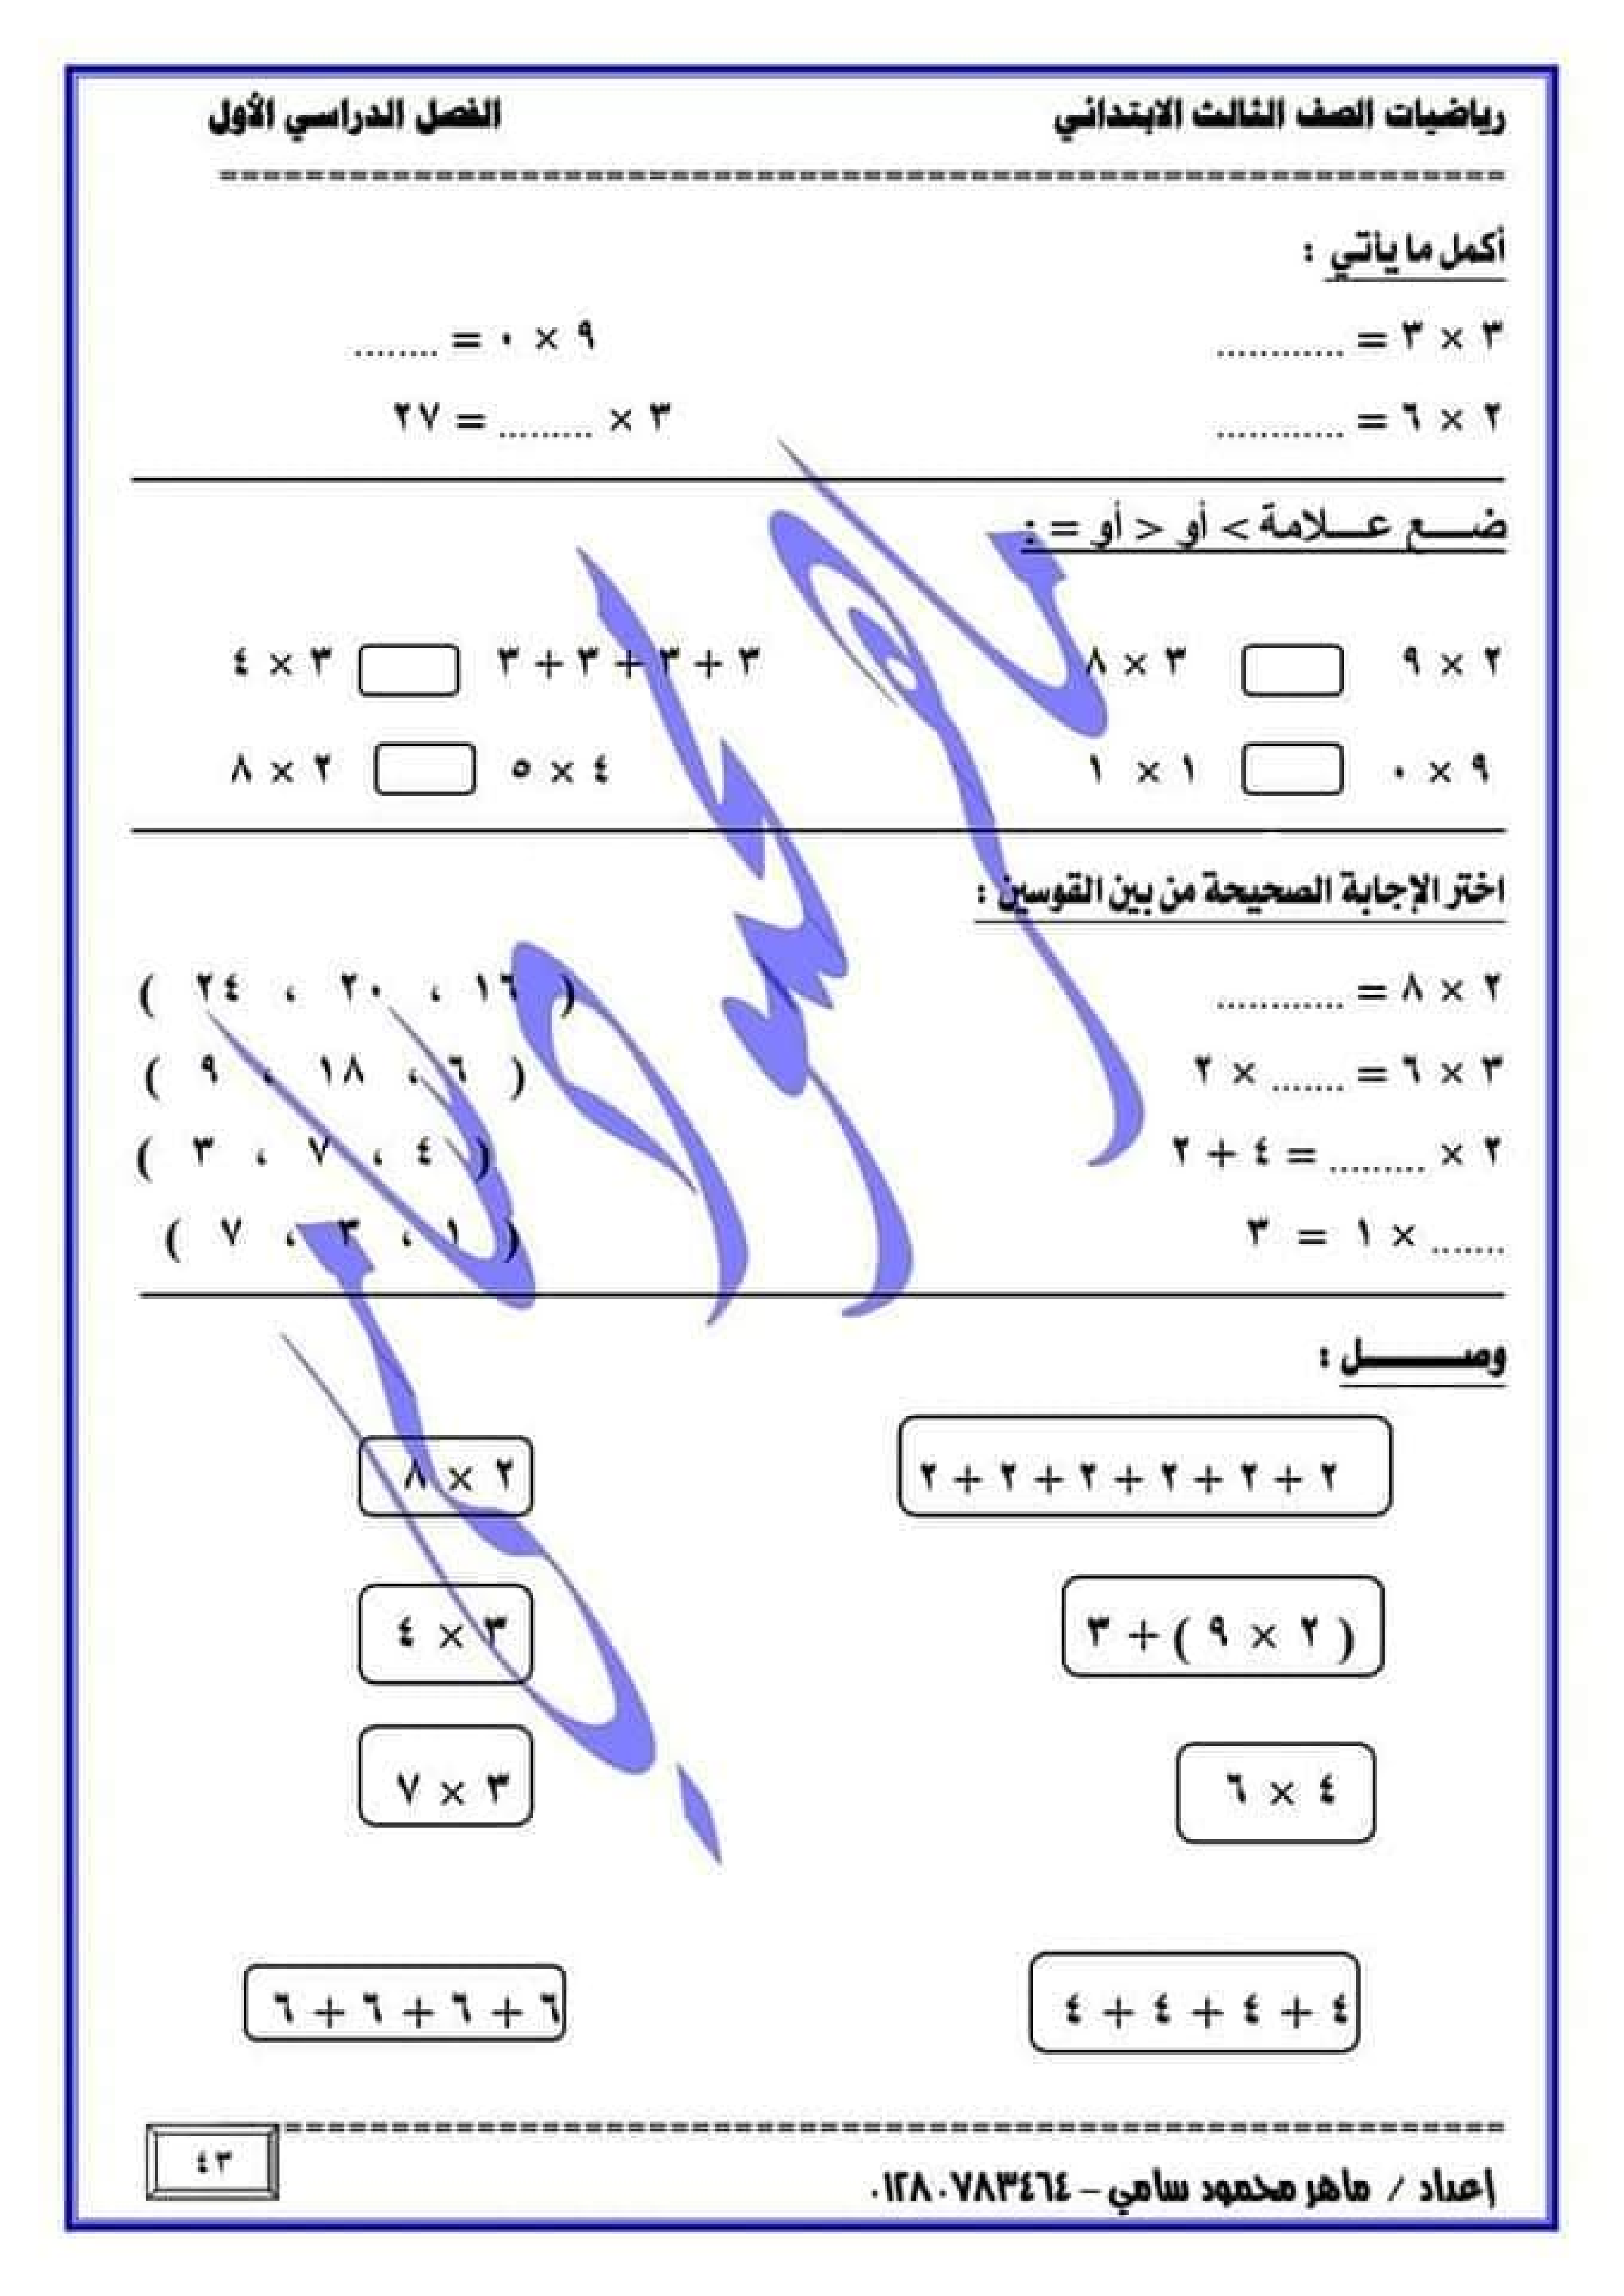 رياضيات الصف الثالث الابتدائي الفصل الدراسي الأول
أكمل ما يأتي :
٣ × ٣ = ............ ٩ × ٠ = ........
٢ × ٦ = ............ ٣ × ......... = ٢٧
ضـــع عـــلامة > أو < أو = :
٢ × ٩ ٣ × ٨ ٣ + ٣ + ٣ + ٣ ٣ × ٤
٩ × ٠ ١ × ١ ٤ × ٥ ٢ × ٨
اختر الإجابة الصحيحة من بين القوسين :
٢ × ٨ = ............ ( ١٦ ، ٢٠ ، ٢٤ )
٣ × ٦ = ....... × ٢ ( ٦ ، ١٨ ، ٩ )
٢ × ......... = ٤ + ٢ ( ٤ ، ٧ ، ٣ )
....... × ١ = ٣ ( ١ ، ٣ ، ٧ )
وصـــــــل :
٢ + ٢ + ٢ + ٢ + ٢ + ٢ ٢ × ٨
( ٢ × ٩ ) + ٣ ٣ × ٤
٤ × ٦ ٣ × ٧
٤ + ٤ + ٤ + ٤ ٦ + ٦ + ٦ + ٦
٤٣
إعداد / ماهر محمود سامي – ٠١٢٨٠٧٨٣٤٦٤